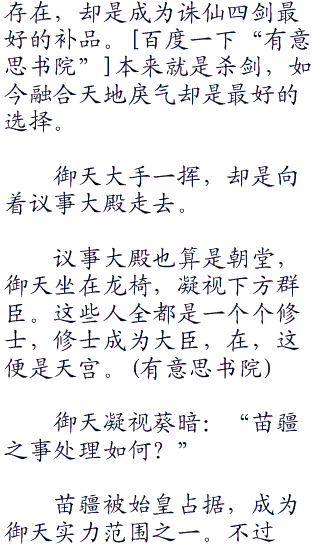 存在，却是成为诛仙四剑最
好的补品。[百度一下“有意
思书院”]本来就是杀剑，如
今融合天地戾气却是最好的
选择。
御天大手一挥，却是向
着议事大殿走去。
议事大殿也算是朝堂，
御天坐在龙椅，凝视下方群
臣。这些人全都是一个个修
士，修士成为大臣，在，这
便是天宫。(有意思书院)
御天凝视葵暗：“苗疆
之事处理如何？”
苗疆被始皇占据，成为
御天实力范围之一。不过